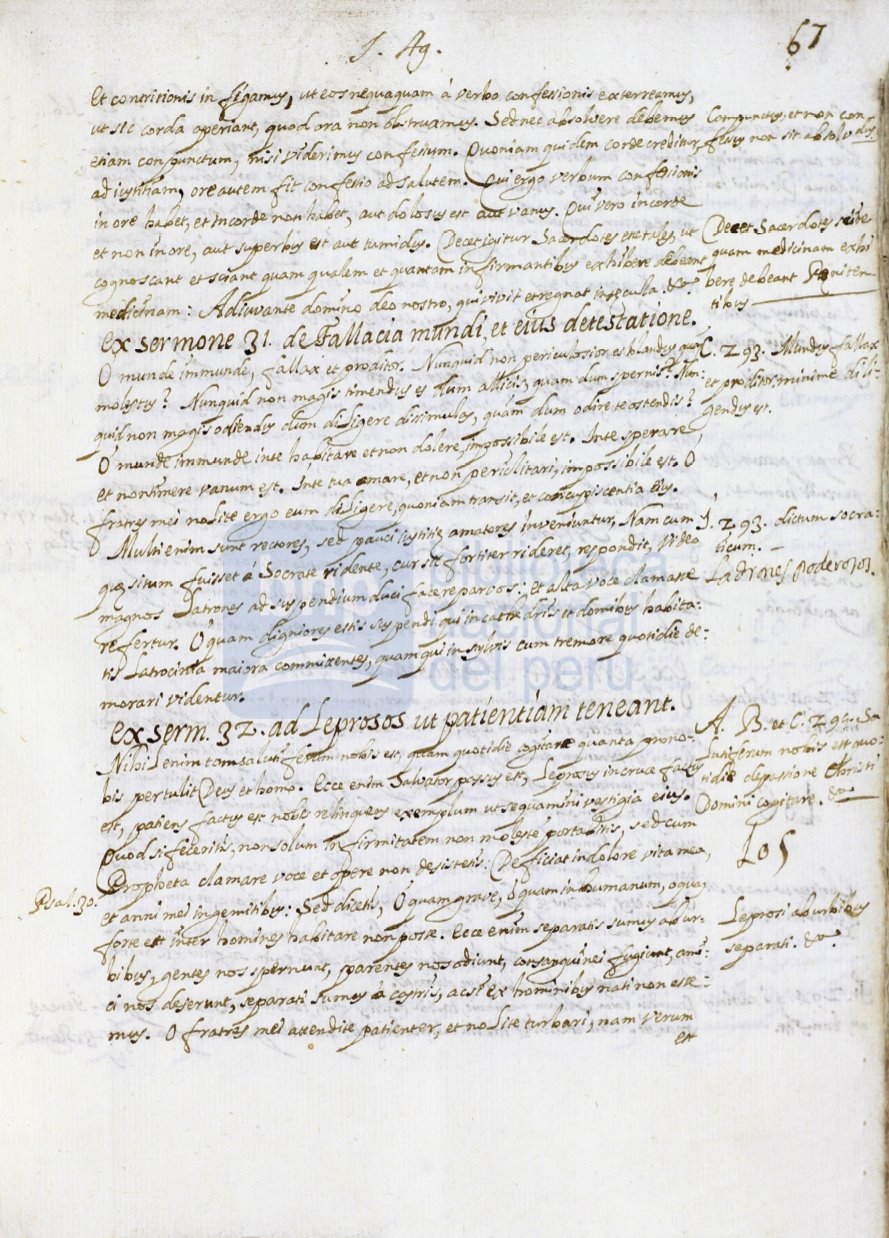 S. Ag.
67
Et contritionis in figamus, ut eos nequaquam á verbo confessionis exterreamus,
ut sic corda aperiant, quod ora non obstruamus. Sed nec absolvere debemus
etiam conpunctum, nisi viderimus confesium. Quoniam quidem corde creditur
ad iustitiam, ore autem fit confesio ad salutem. Qui ergo verbum confesionis
in ore habet, et in corde non habet, aut dolosus est aut vanus. Qui vero in corde
et non in ore, aut superbus est aut tumidus. Decet igitur Sacerdotes ut
cognoscant et sciant quam qualem et quantam infirmantibus exhibere debeant
medicinam: Adiuvante domino deo nostro, qui vivit et regnat in secula. &c
Compunctus, et non con
fesus non sit absolvendus.
Decet Sacerdotes scire
quam medicinam exhi
bere debeant Poeniten
tibus
Ex sermone 31. de Fallacia mundi, et eius detestatione.
O munde immunde, fallax et proditor. Nunquid non periculosior es blandus quam
molestus? Nunquid non magis timendus es dum allicis, quam dum spernis? Nun:
quid non magis odiendus dum diligere disimules, quám dum odire te ostendis?
O munde immunde in te habitare et non dolere, impossibile est. In te sperare,
et non timere vanum est. Inte tua amare, et non periclitari, impossibile est. O
fratres mei nolite ergo eum diligere, quoniam transit, et concupiscentia eius.
C. 293. Mundus fallax
et proditor, minime dili-
gendus est.
Multi enim sunt rectores, sed pauci iustitiæ amatores inveniuntur, Nam cum
quæsitum fuisset á Socrate ridente, cur sit fortiter rideret, respondit, video
magnos Latrones ad suspendium duci facere parvos: et alta voce clamasse
refertur. O quam digniores estis suspendi qui in cathedris et domibus habita:
tis Latrocinia maiora committentes, quam qui in sylvis cum tremore quotidie de-
morari videntur.
J. 293. dictum socra-
ticum.
Ladrones Poderosos.
Ex serm. 32. ad Leprosos ut patientiam teneant.
Nihil enim tam salutiferum nobis est, quam quotidie cogitare quanta prono-
bis pertulit Deus et homo. Ecce enim Salvator passus est, Leprosus in cruce factus
est, patiens factus est nobis relinquens exemplum ut sequamini vestigia eius.
Quod si feceritis, non solum infirmitatem non moleste portabitis, sed cum
Propheta clamare voce et opere non desistetis: Deficiat in dolore vita mea,
et anni mei in gemitibus: Sed dicetis, O quam grave, ó quam inhumanum, o quam
forte est inter homines habitare non posse. Ecce enim separatis sumus ab ur-
bibus, gentes nos spernunt, parentes nos odiunt, consanguinei fugiunt, ami-
ci nos deserunt, separati sumus á castris, ac si ex hominibus nati non esse-
mus. O fratres mei attendite patienter, et nolite turbari, nam verum
est
A. B. et C. 294. Sa
lutiferum nobis est quo
tidie de passione Christi
Domini cogitare. &c
Los
Psal. 30.
Leprosi ab urbibus
separati. &c
biblioteca
nacional
del perú